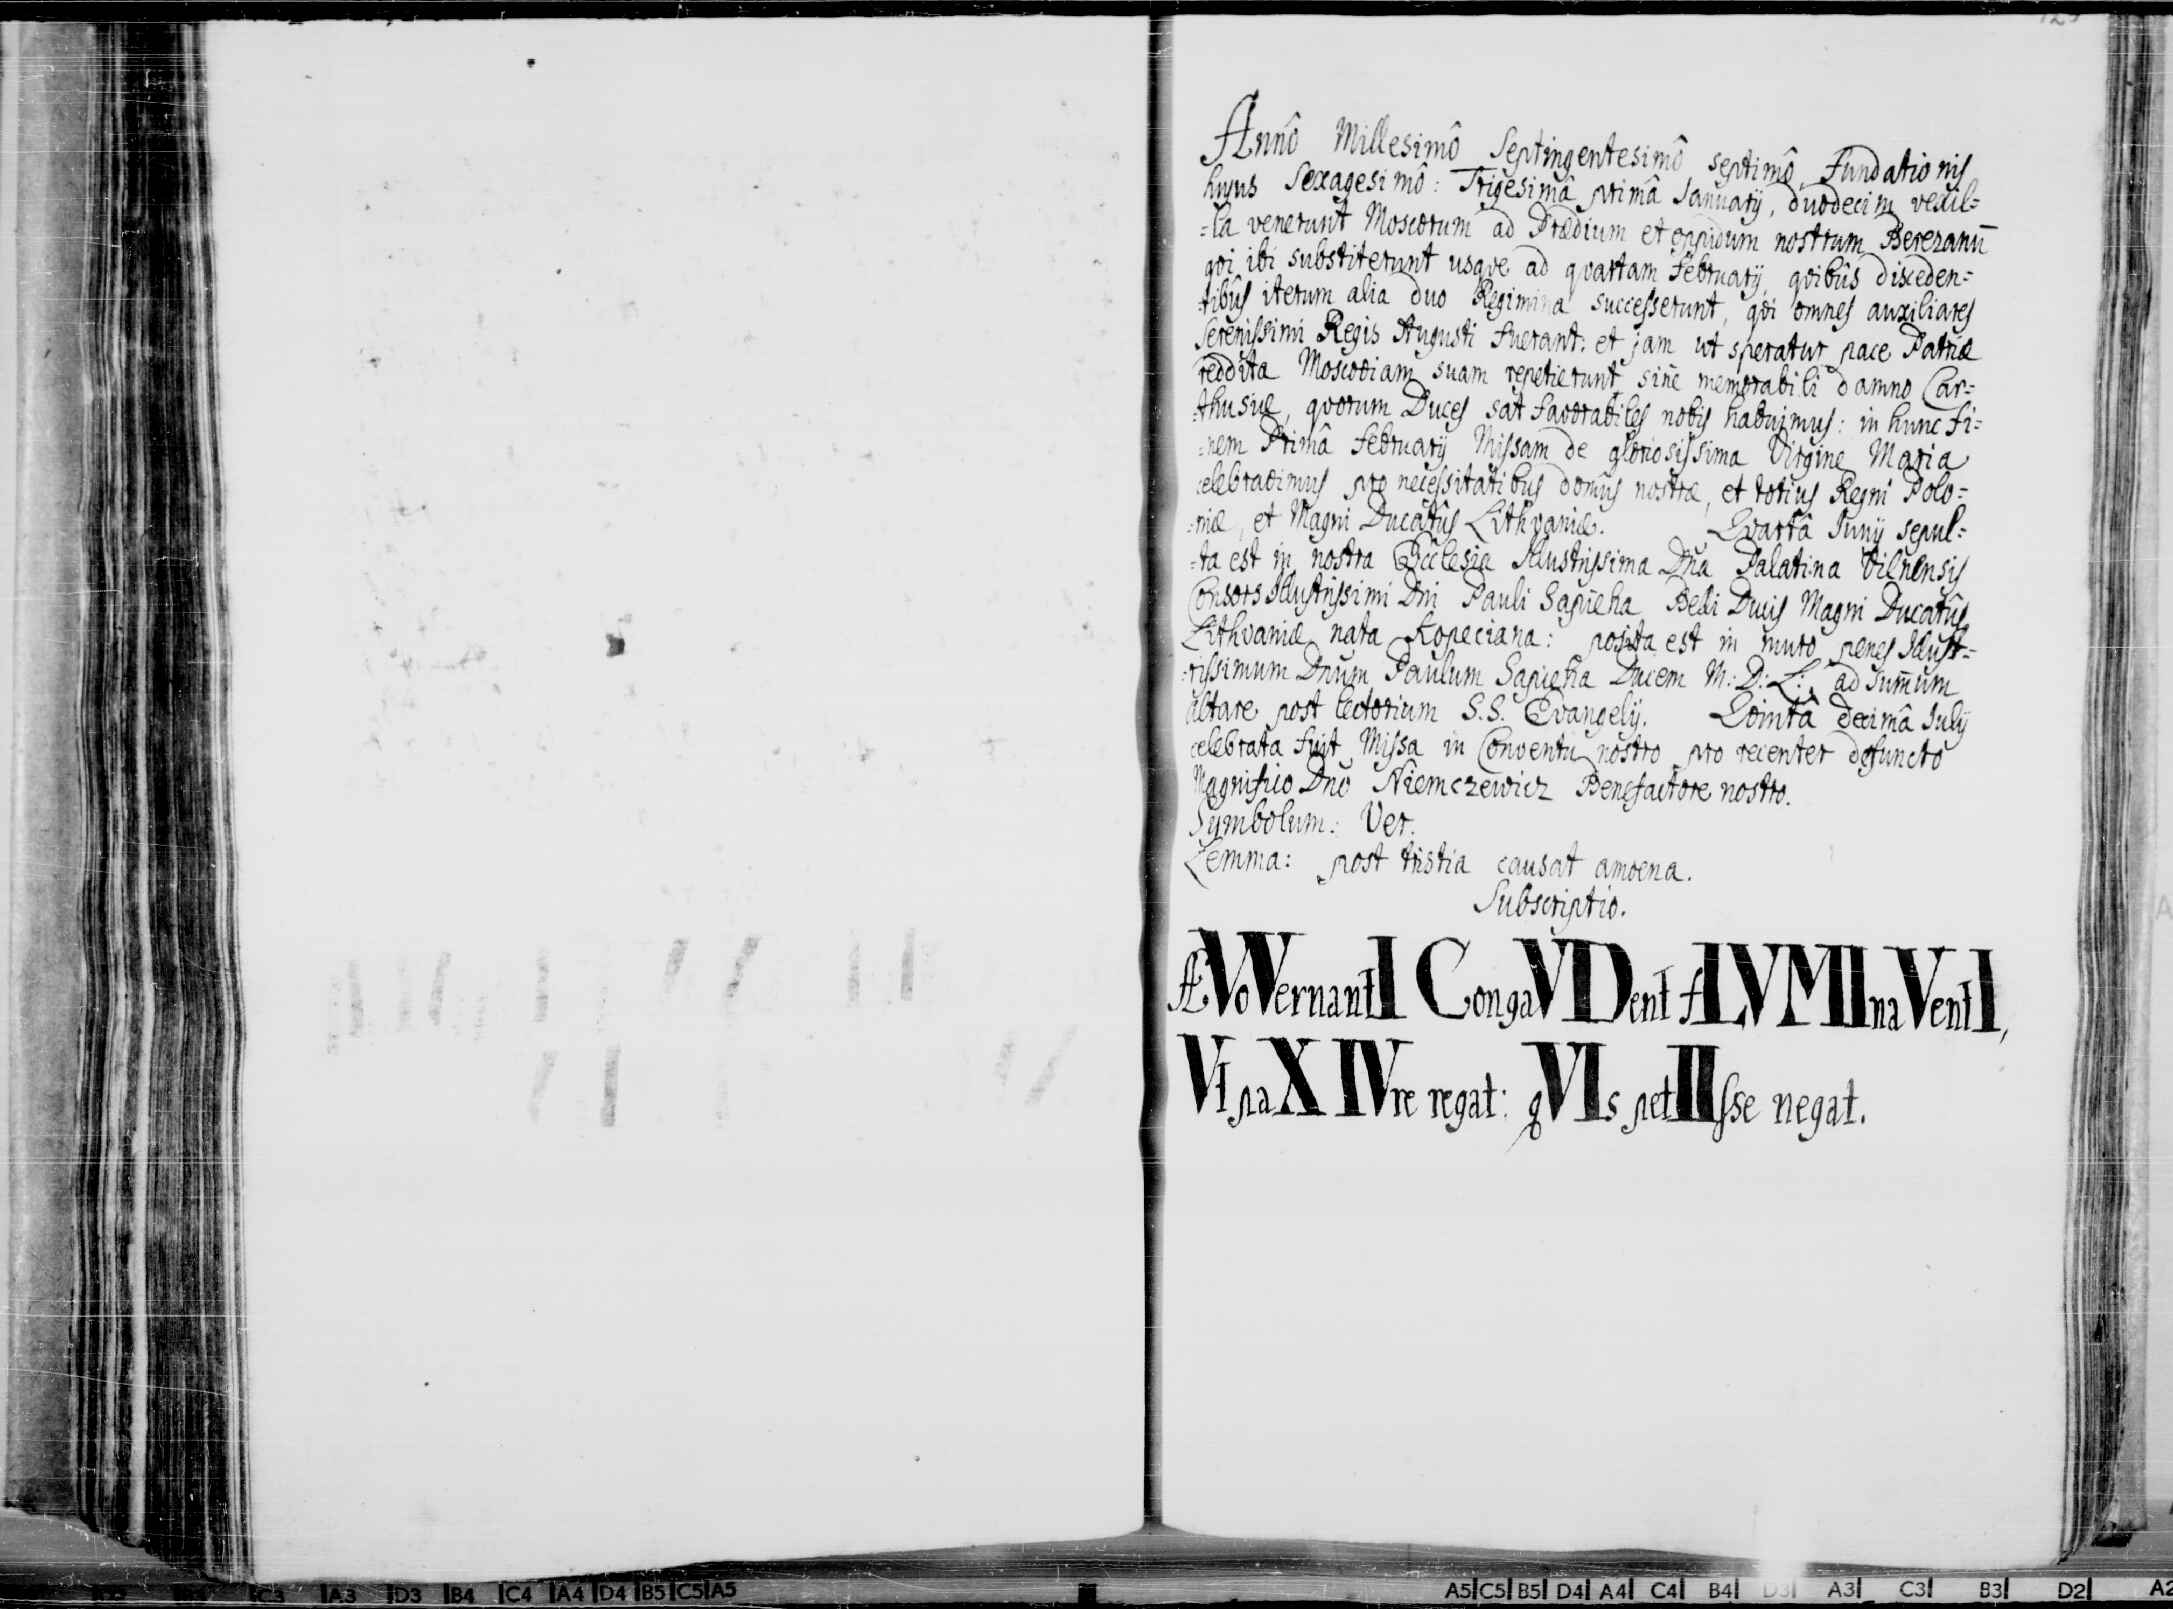 Annô Millesimô Septingentesimô septimô, Fundationis
hujus Sexagesimô: Trigesimâ primâ Januarij, duodecim vexil=
=la venerunt Moscorum ad Prædium et oppidum nostrum Berezanū
qvi ibi substiterunt usqve ad qvartam Februarij, qvibûs disceden=
=tibûs iterum alia duo Regimina successerunt, qvi omnes auxiliares
Serenissimi Regis Augusti fuerant: et jam ut speratur pace Patriæ
reddita Moscoviam suam repetierunt, sine memorabili damno Car=
=thusiæ, qvorum Duces sat favorabiles nobis habuimus: in hunc fi=
=nem Primâ Februarij Missam de gloriosissima Virgine Maria
celebravimus pro necessitatibus domûs nostræ, et totius Regni Polo=
=niæ, et Magni Ducatûs Lithvaniæ. Qvartâ Junij sepul=
=ta est in nostra Ecclesia Illustrissima Dna Palatina Vilnensis
Consors Illustrissimi Dni Pauli Sapieha Belli Ducis Magni Ducatûs
Lithvaniæ nata Kopeciana: posita est in muro penes Illust=
=rissimum Dnum Paulum Sapieha Ducem M: D: L:, ad Sum̄um
altare post lectorium S.S. Evangelij. Qvintâ decimâ Julij
celebrata fuit Missa in Conventu nostro pro recenter defuncto
Magnifico Dno Niemczewicz Benefactore nostro.
Symbolum: Ver.
Lemma: post tristia causat amoena.
Subscriptio.
ÆVo VernantI CongaVDent fLVMIna VentI,
VI paX IVre regat: qVIs petIIsse negat.
A3 D3 B4 C4 A4 D4 B5 C5 A5
A5 C5 B5 D4 A4 C4 B4 D3 A3 C3 B3 D2 A2